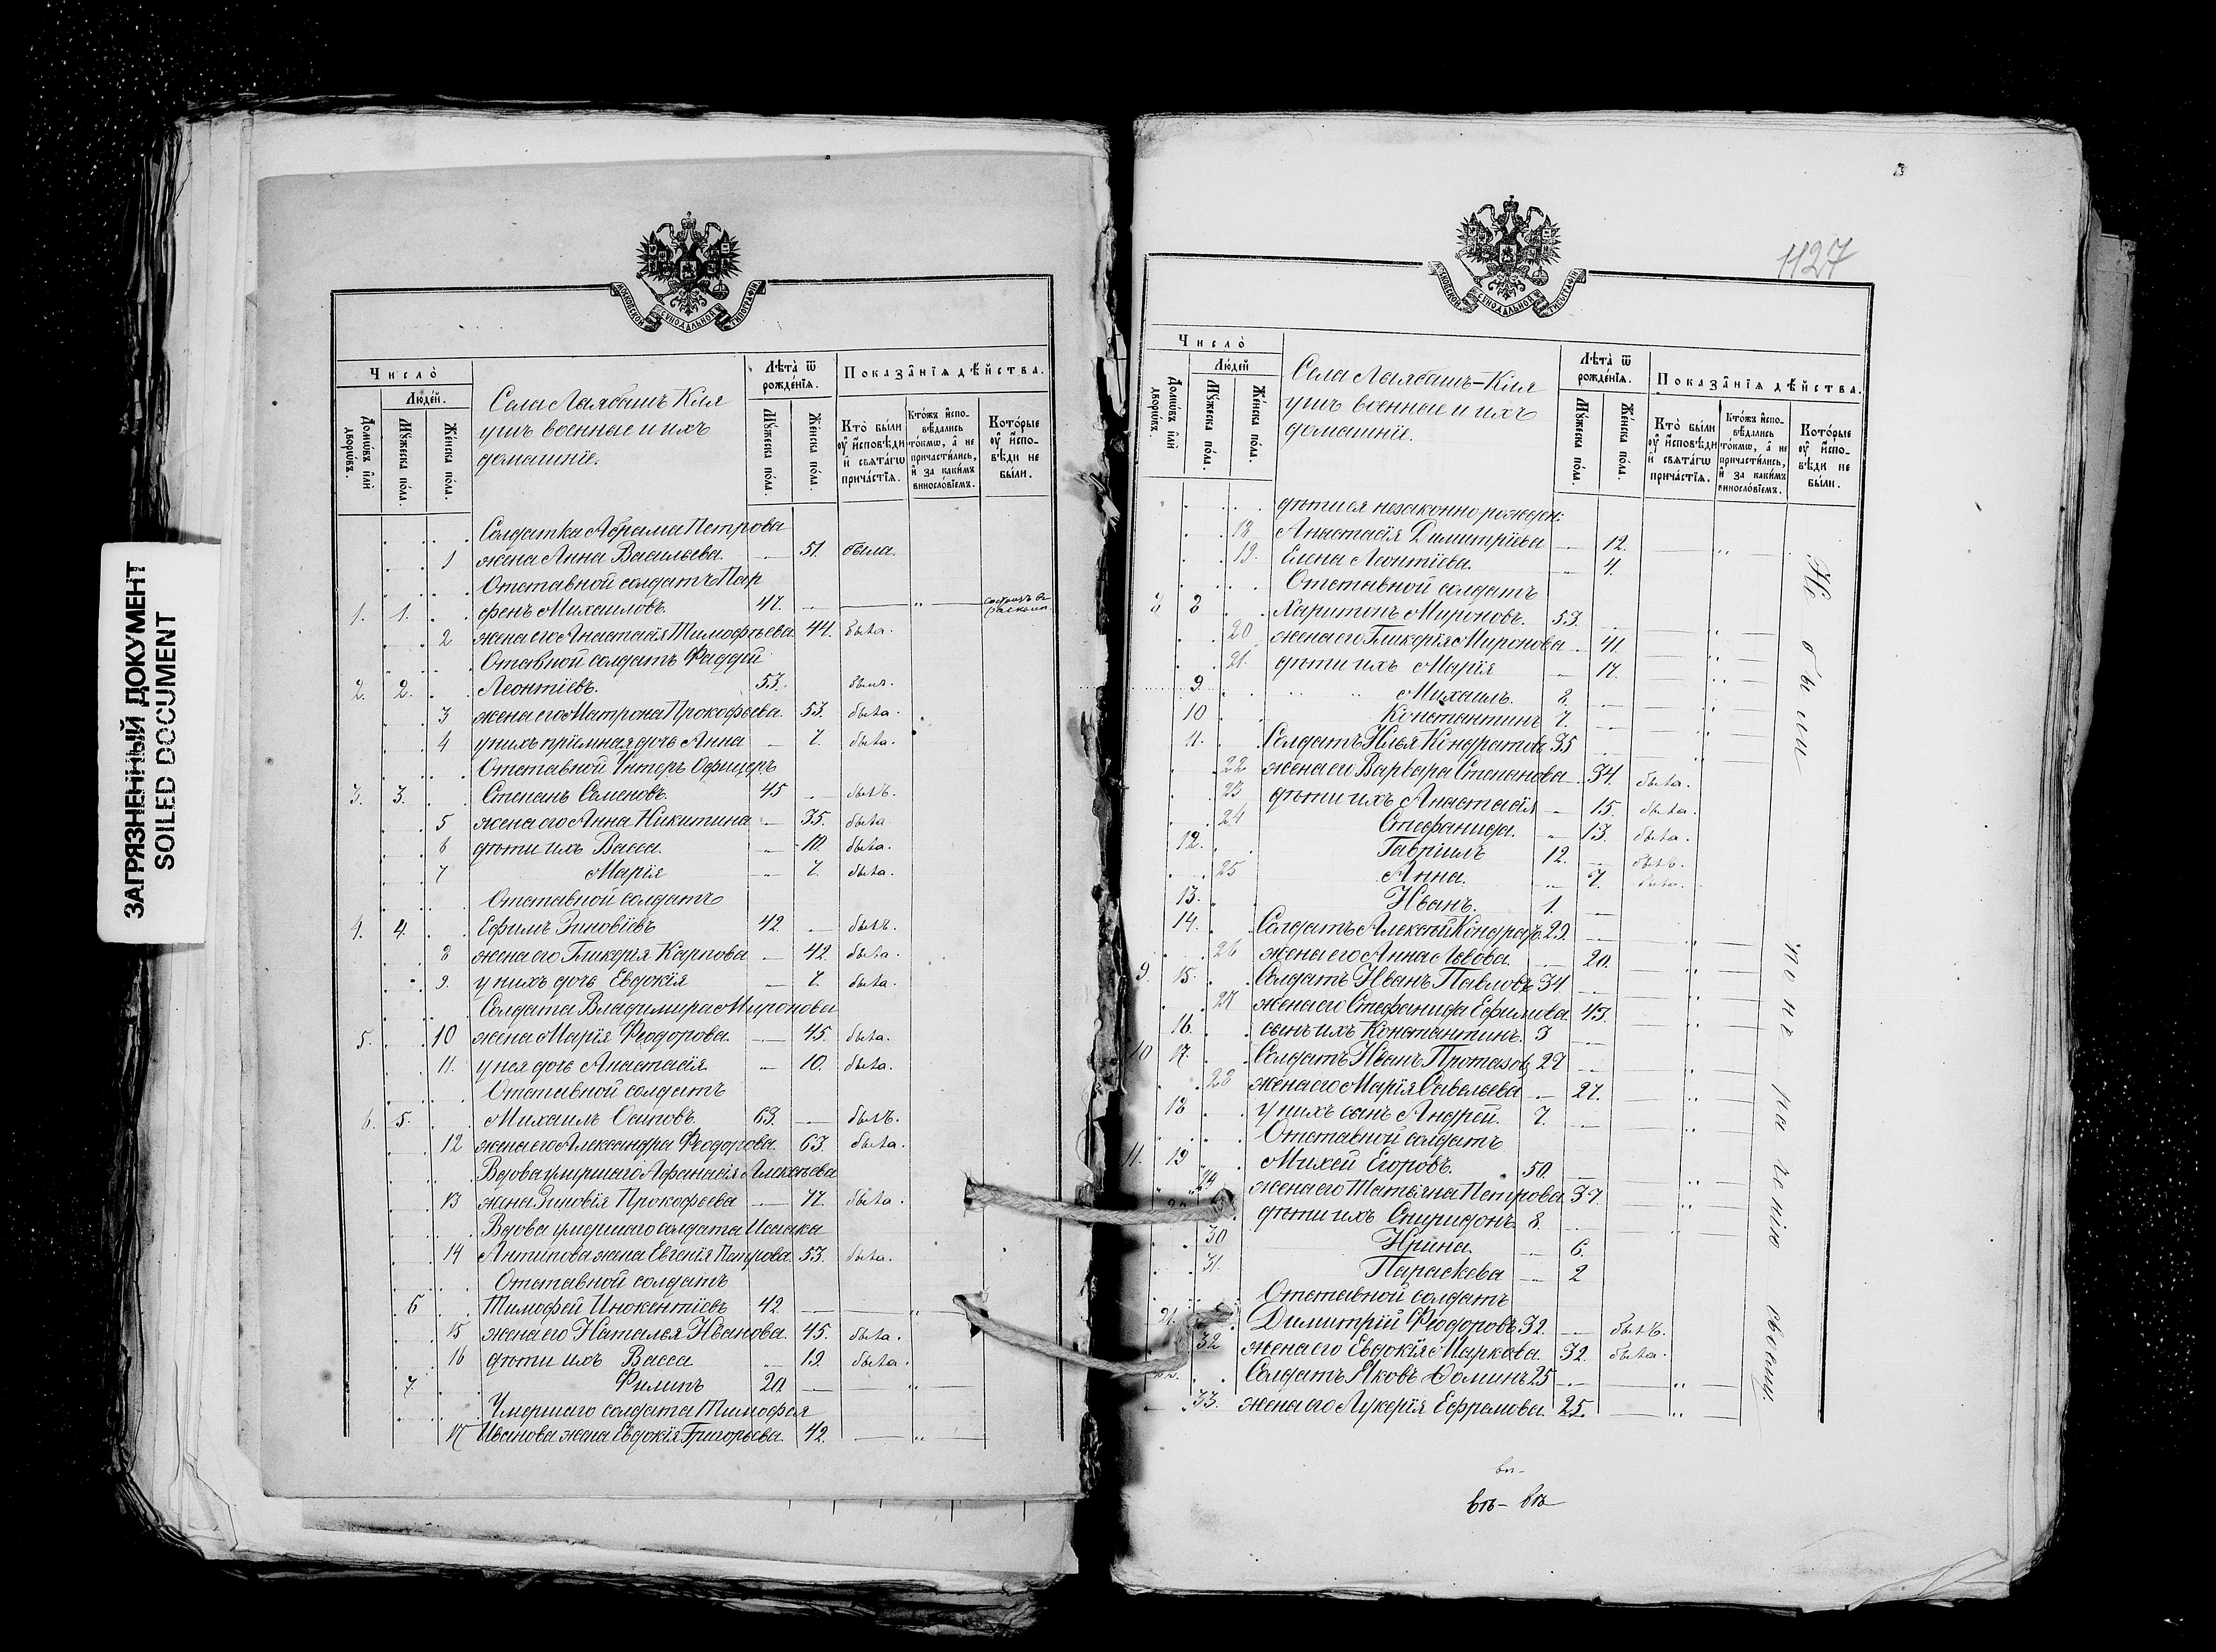 ЗАГРЯЗНЕННЫЙ ДОКУМЕНТ
SOILED DOCUMENT
МОСКОВСКОЙ СУНОДАЛЬНОЙ ТИПОГРАФIИ
Число̀
Людей.
Домѡвъ и҆лѝ дворѡвъ.
Мꙋжеска по́ла.
Же́нска по́ла.
Села Лаябашъ Кия
ушъ военные и ихъ
домашніе.
Лѣта̀ ѿ рожде́нїѧ.
Мꙋжеска по́ла.
Же́нска по́ла.
Показа̑нїѧ дѣ́йства.
Кто̀ бы́ли ᲂу҆ и҆сповѣди и҆ свѧта́гѡ прича́стїѧ.
Кто́жъ и҆спо- вѣ́дались то́кмѡ, а҆ не причасти́лись, и҆ за каки́мъ винослѡ́вїемъ.
Кото́рые ᲂу҆ и҆спо- вѣди не бы́ли.
Солдатка Абрама Петрова
1 жена Анна Васильева. — 51. была.
Отставной солдатъ Пар
1. 1. фенъ Михаиловъ. 47. — — „ —
2 жена его Анастасія Тимофѣева. 44. была.
Отавной солдатъ Фаддей
2. 2. Леонтіевъ. 53. былъ.
3 жена его Матрона Прокофьева. 53. была.
4 у нихъ пріемная дочь Анна — 7. была.
Отставной Унтеръ Офицеръ
3. 3. Степанъ Семеновъ. 45 — былъ.
5 жена его Анна Никитина — 35. была
6 дѣти ихъ Васса. — 10. была.
7 Марія — 7. была.
Отставной солдатъ
4. 4. Ефимъ Зиновіевъ 42. — былъ.
8 жена его Гликерія Карпова — 42. была.
9. у нихъ дочь Евдокія — 7. была.
Солдата Владимира Миронова
5. 10 жена Марія Феодорова. — 45. была.
11. у нея дочь Анастасія. — 10. была.
Отставной солдатъ
6. 5. Михаилъ Осиповъ. 63. — былъ.
12 жена его Александра Феодорова. 63. была.
Вдова умершаго Афанасія Алексѣева
13 жена Зиновія Прокофьева — 77. была.
Вдова умершаго солдата Исаака
14 Антипова жена Евгенія Петрова. 53. была.
Отставной солдатъ
6 Тимофей Инокентіевъ 42. — — „ —
15 жена его Наталья Иванова. 45. была.
16 дѣти ихъ Васса — 19. была.
7. Филипъ 20. — — „ —
Умершаго солдата Тимофея
17 Иванова жена Евдокія Григорьева. 42. — „ —
1127
МОСКОВСКОЙ СУНОДАЛЬНОЙ ТИПОГРАФIИ
Число̀
Людей
Домѡвъ и҆лѝ дворѡвъ.
Мꙋжеска по́ла.
Же́нска по́ла.
Села Лаябашъ-Кия
ушъ военные и ихъ
домашніе.
Лѣта̀ ѿ рожде́нїѧ.
Мꙋжеска по́ла.
Же́нска по́ла.
Показа̑нїѧ дѣ́йства.
Кто̀ бы́ли ᲂу҆ и҆сповѣди и҆ свѧта́гѡ прича́стїѧ.
Кто́жъ и҆спо- вѣ́дались то́кмѡ, а҆ не причасти́лись, и҆ за каки́мъ винослѡ́вїемъ.
Кото́рые ᲂу҆ и҆спо- вѣди не бы́ли.
дѣти ея незаконно рожден:
18 Анастасія Димитріева — 12. — „ —
19. Елена Леонтіева. — 4.
Отставной солдатъ
8 8 Харитонъ Мироновъ. 53. —
20 жена его Гликерія Миронова — 41.
21. дѣти ихъ Марія — 17.
9 Михаилъ. 8. —
10 Константинъ 7. —
11. Солдатъ Илья Кондратовъ 35 —
22 жена его Варвара Степанова — 34. была.
23 дѣти ихъ Анастасія — 15. была.
24 Стефанида. — 13. была.
12. Гавріилъ 12. — былъ.
25 Анна. — 7. была.
13. Иванъ. 1. —
14. Солдатъ Алексѣй Кондраф. 29. —
26 жена его Анна Львова. — 20.
9. 15. Солдатъ Иванъ Павловъ 34 —
27 жена его Стефанида Ефимова 43.
16. сынъ ихъ Константинъ. 3 —
10 17. Солдатъ Иванъ Протазов 27 —
28 жена его Марія Савельева — 27.
18 у нихъ сынъ Андрей. 7. —
Отставной солдатъ
11. 19 Михей Егоровъ. 50. —
29 жена его Татьяна Петрова 37.
дѣти ихъ Спиридонъ. 8. —
30 Ирина. — 6.
31. Параскева — 2
Отставной солдатъ
21. Димитрій Феодоровъ 32. — былъ.
32 жена его Евдокія Маркова. 32. была.
Солдатъ Яковъ Фоминъ 25 — — „ —
33. жена его Лукерія Ефремова. 25. — „ —
Не были
вп-
въ- въ